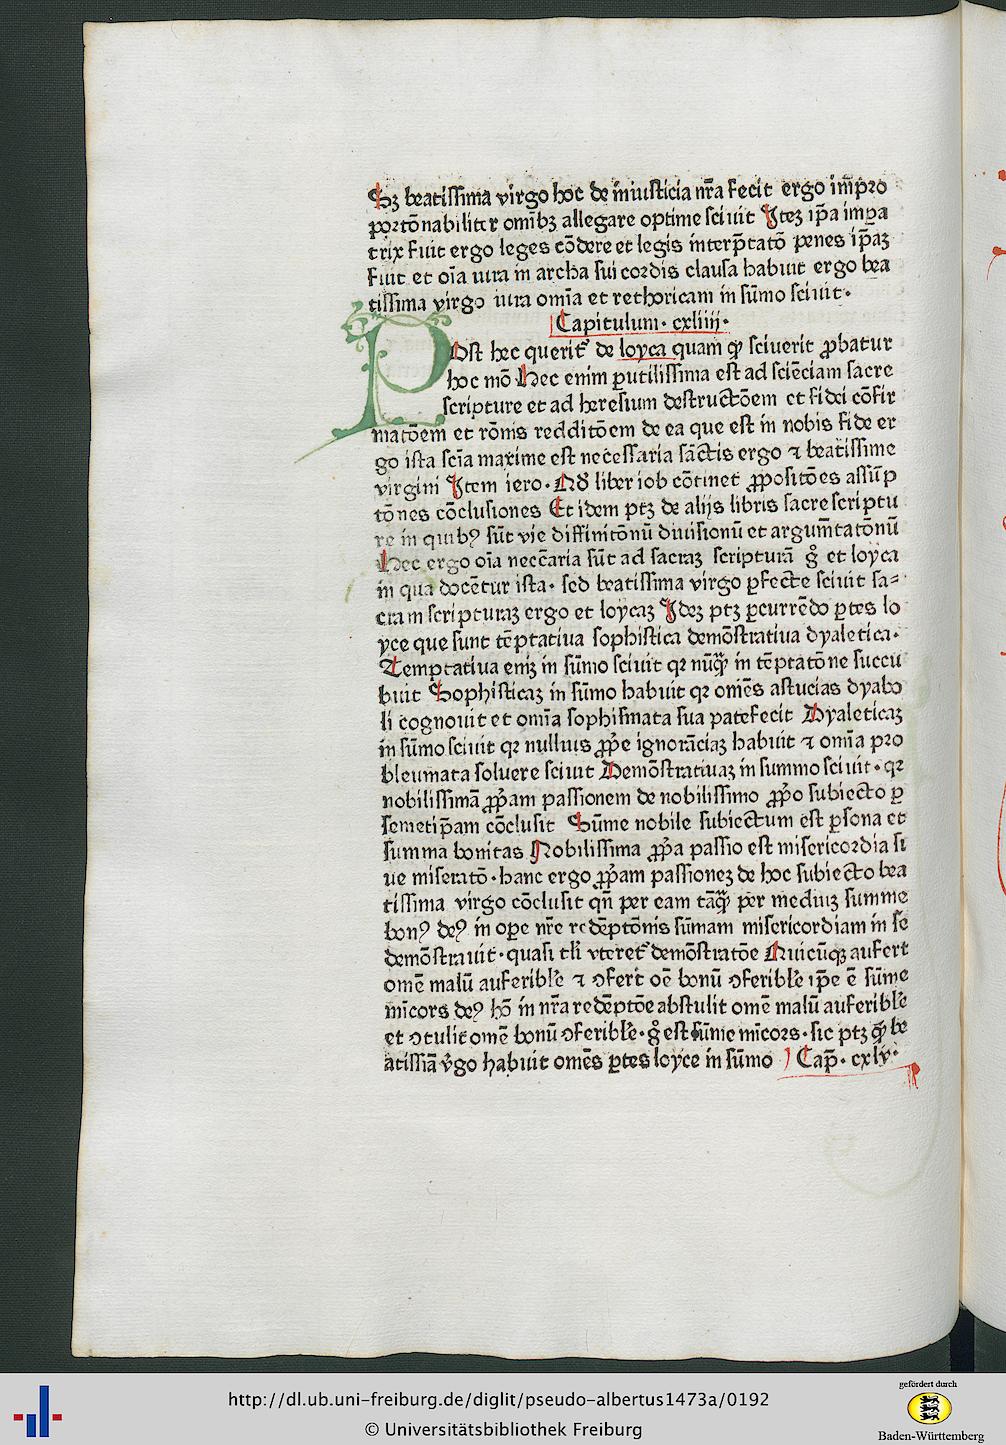 Sꝫ beatissima virgo hoc de iniusticia nr̄a fecit ergo im̄pro
portōnabiliter omībꝫ allegare optime sciuit Iteꝫ ip̄a impa
trix fuit ergo leges cōdere et legis interp̄tatō penes ip̄aꝫ
fuit et oīa iura in archa sui cordis clausa habuit ergo bea
tissima virgo iura omīa et rethoricam in sūmo sciuit·
Capitulum· cxliiij·
Post hec querit᷑ de loyca quam ꝙ sciuerit ꝓbatur
hoc mō Hec enim ꝑutilissima est ad sciēciam sacre
scripture et ad heresium destructōem et fidei cōfir
matōem et rōnis redditōem de ea que est in nobis fide er
go ista scīa maxime est necessaria sāctis ergo ⁊ beatissime
virgini Item iero· Ad liber iob cōtinet ꝓpositōes assūp
tōnes cōclusiones Et idem ptꝫ de alijs libris sacre scriptu
re in quibꝰ sūt vie diffinitōnū diuisionū et argum̄tatōnū
Hec ergo oīa necc̄aria sūt ad sacraꝫ scripturā g̊ et loyca
in qua docētur ista· sed beatissima virgo ꝑfecte sciuit sa⸗
cram scripturaꝫ ergo et loycaꝫ Ideꝫ ptꝫ ꝑcurrēdo ꝑtes lo
yce que sunt tēptatiua sophistica demōstratiua dyaletica·
Temptatiua eniꝫ in sūmo sciuit qꝛ nūꝙ̄ in tēptatōne succu
buit Sophisticaꝫ in sūmo habuit qꝛ omēs astucias dyabo
li cognouit et omīa sophismata sua patefecit Dyaleticaꝫ
in sūmo sciuit qꝛ nullius ꝓp̄e ignorāciaꝫ habuit ⁊ omīa pro
bleumata soluere sciuit Demōstratiuaꝫ in summo sciuit· qꝛ
nobilissimā ꝓp̄am passionem de nobilissimo ꝓp̄o subiecto ꝑ
semetip̄am cōclusit Sūme nobile subiectum est ꝑsona et
summa bonitas Nobilissima ꝓp̄a passio est misericordia si
ue miseratō· hanc ergo ꝓp̄am passioneꝫ de hoc subiecto bea
tissima virgo cōclusit qn̄ per eam tāꝙ̄ per mediuꝫ summe
bonꝰ deꝰ in oꝑe nr̄e redēptōnis sūmam misericordiam in se
demōstrauit· quasi tłi vteret᷑ demōstratōe Quicūqꝫ aufert
omē malū auferibłe ⁊ ↄfert oē bonū ↄferibłe ip̄e ē sūme
mīcors deꝰ hō in nr̄a redēptōe abstulit omē malū auferibłe
et ↄtulit omē bonū ↄferibłe· g̊ est sūme mīcors· sic ptꝫ ꝙ be
atissīa v̄go habuit omēs ꝑtes loyce in sūmo Cap̄· cxlv·
http://dl.ub.uni-freiburg.de/diglit/pseudo-albertus1473a/0192
© Universitätsbibliothek Freiburg
gefördert durch
Baden-Württemberg